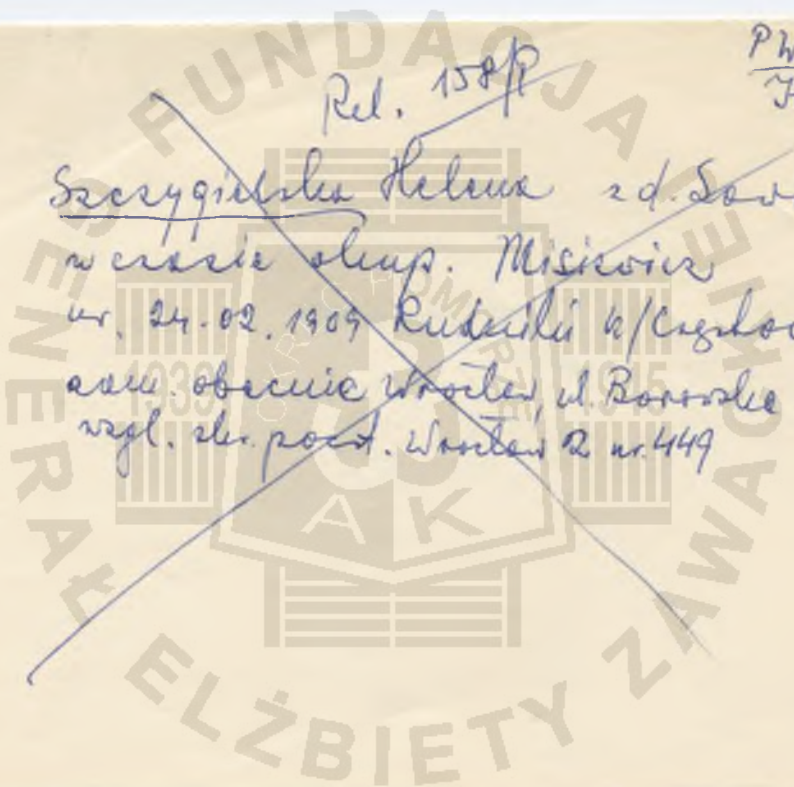 Rel. 158/P
Szczygielska Helena zd.
w czasie okup. Misiewicz
ur. 24.02.1909 k/
zam. obecnie Wrocław, ul. Borowska
wzgl. skr. poczt. Wrocław 2 nr. 449
FUNDACJA GENERAŁ ELŻBIETY ZAWACKIEJ
1939 1945
POMORZE
AK